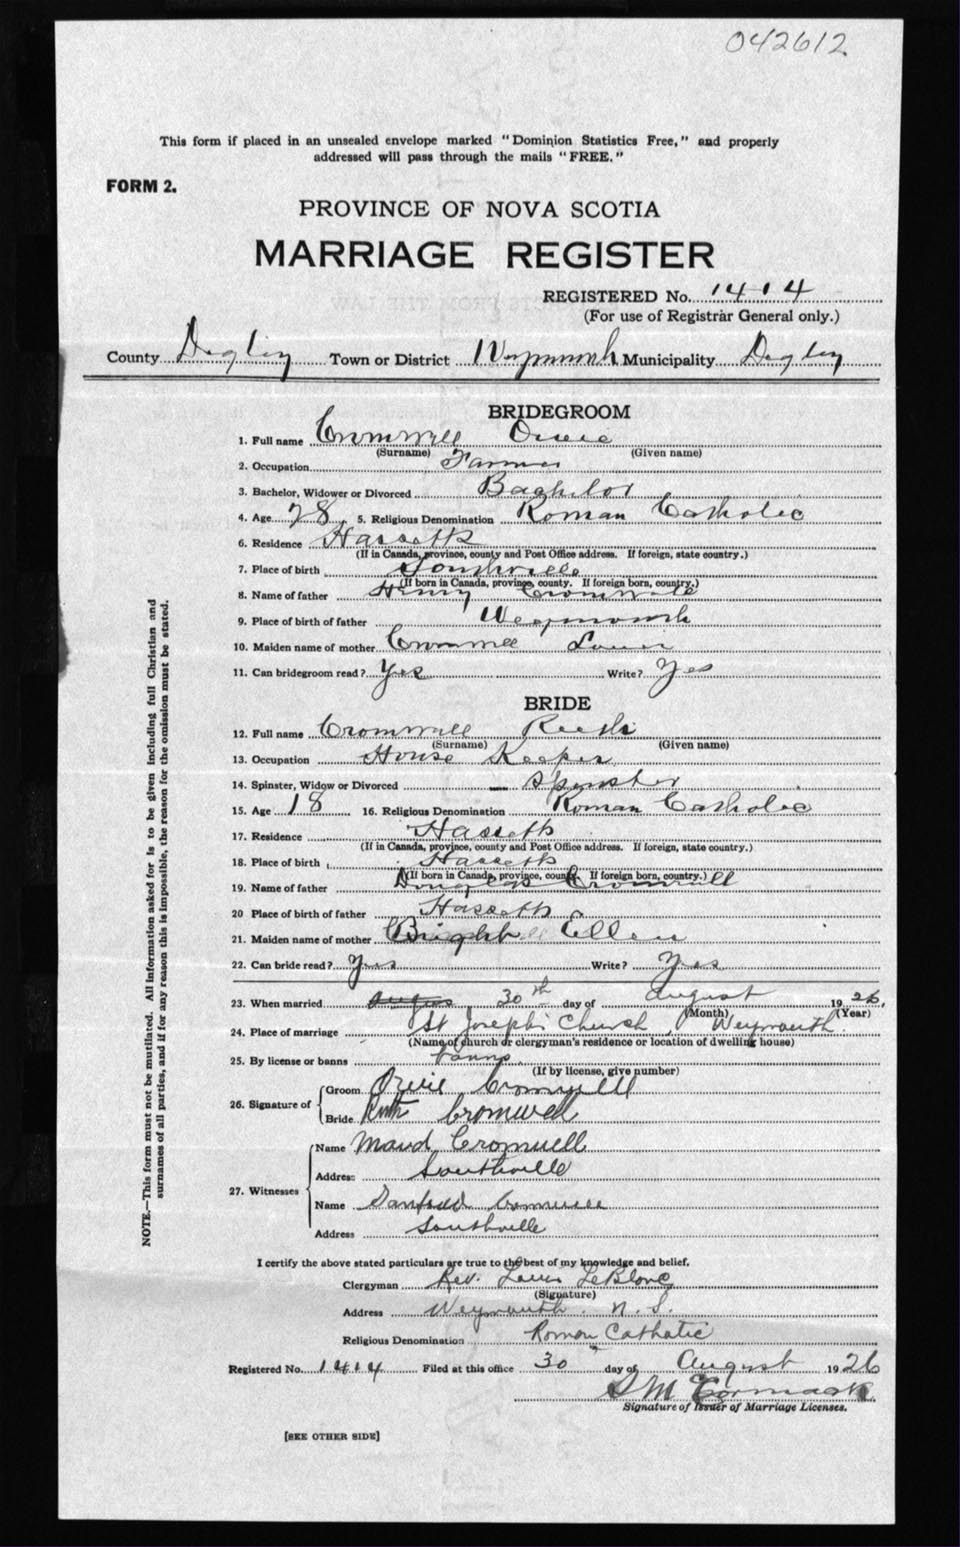 042612
This form if placed in an unsealed envelope marked "Dominion Statistics Free," and properly
addressed will pass through the mails "FREE."
FORM 2.
PROVINCE OF NOVA SCOTIA
MARRIAGE REGISTER
REGISTERED No. 1414
(For use of Registrar General only.)
County Digby Town or District Weymouth Municipality Digby
BRIDEGROOM
1. Full name Cromwell
(Surname) (Given name)
2. Occupation Farmer
3. Bachelor, Widower or Divorced Bachelor
4. Age 28 5. Religious Denomination Roman Catholic
6. Residence Hassetts
(If in Canada, province, county and Post Office address. If foreign, state country.)
7. Place of birth Southville
(If born in Canada, province, county. If foreign born, country.)
8. Name of father Henry Cromwell
9. Place of birth of father Weymouth
10. Maiden name of mother Cromwell
11. Can bridegroom read? Yes Write? Yes
BRIDE
12. Full name Cromwell
(Surname) (Given name)
13. Occupation House Keeper
14. Spinster, Widow or Divorced Spinster
15. Age 18 16. Religious Denomination Roman Catholic
17. Residence Hassetts
(If in Canada, province, county and Post Office address. If foreign, state country.)
18. Place of birth Hassetts
(If born in Canada, province, county. If foreign born, country.)
19. Name of father Douglas Cromwell
20 Place of birth of father Hassetts
21. Maiden name of mother Ellen
22. Can bride read? Yes Write? Yes
23. When married August 30th day of August 1926
(Month) (Year)
24. Place of marriage St Joseph's Church, Weymouth
(Name of church or clergyman's residence or location of dwelling house)
25. By license or banns banns
(If by license, give number)
26. Signature of
Groom Orvie Cromwell
Bride Ruth Cromwell
27. Witnesses
Name Maud Cromwell
Address Southville
Name Cromwell
Address Southville
I certify the above stated particulars are true to the best of my knowledge and belief.
Clergyman Rev. Louis LeBlanc
(Signature)
Address Weymouth N.S.
Religious Denomination Roman Catholic
Registered No. 1414 Filed at this office 30 day of August 1926
Signature of Issuer of Marriage Licenses.
[SEE OTHER SIDE]
NOTE.—This form must not be mutilated. All information asked for is to be given including full Christian and
surnames of all parties, and if for any reason this is impossible, the reason for the omission must be stated.